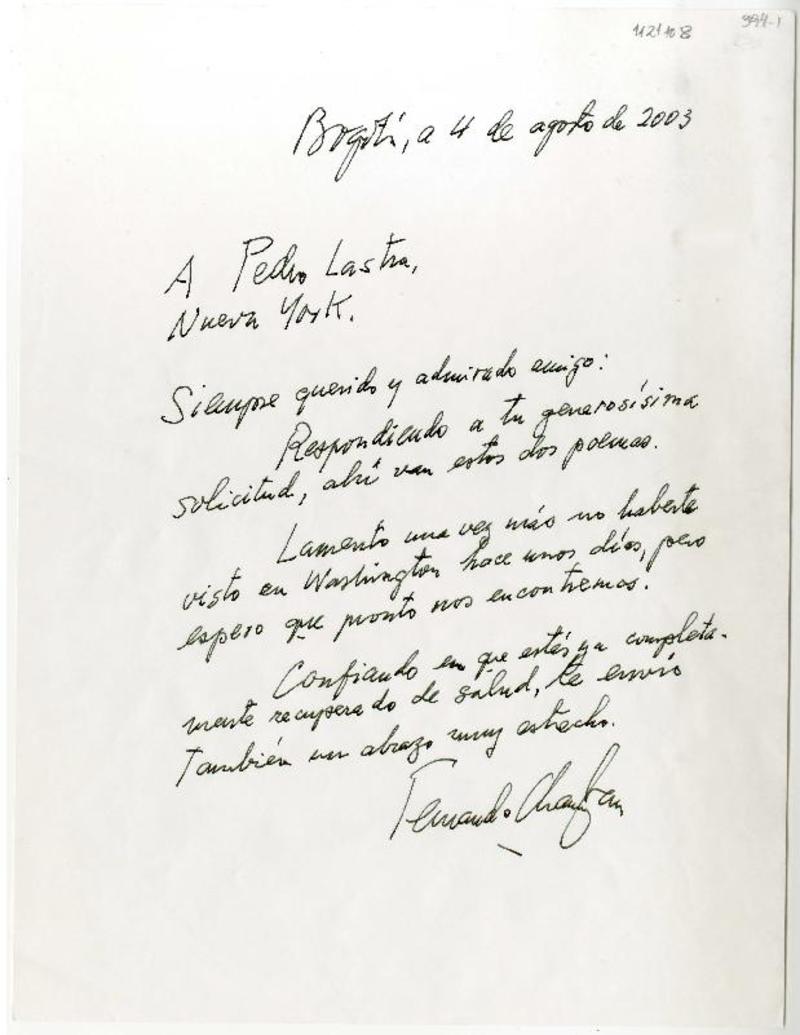 1121108
994-1
Bogotá, a 4 de agosto de 2003
A Pedro Lastra,
Nueva York.
Siempre querido y admirado amigo:
Respondiendo a tu generosísima
solicitud, ahí van estos dos poemas.
Lamento una vez más no haberte
visto en Washington hace unos días, pero
espero que pronto nos encontremos.
Confiando en que estés ya completa-
mente recuperado de salud, te envío
también un abrazo muy estrecho.
Fernando Charry Lara